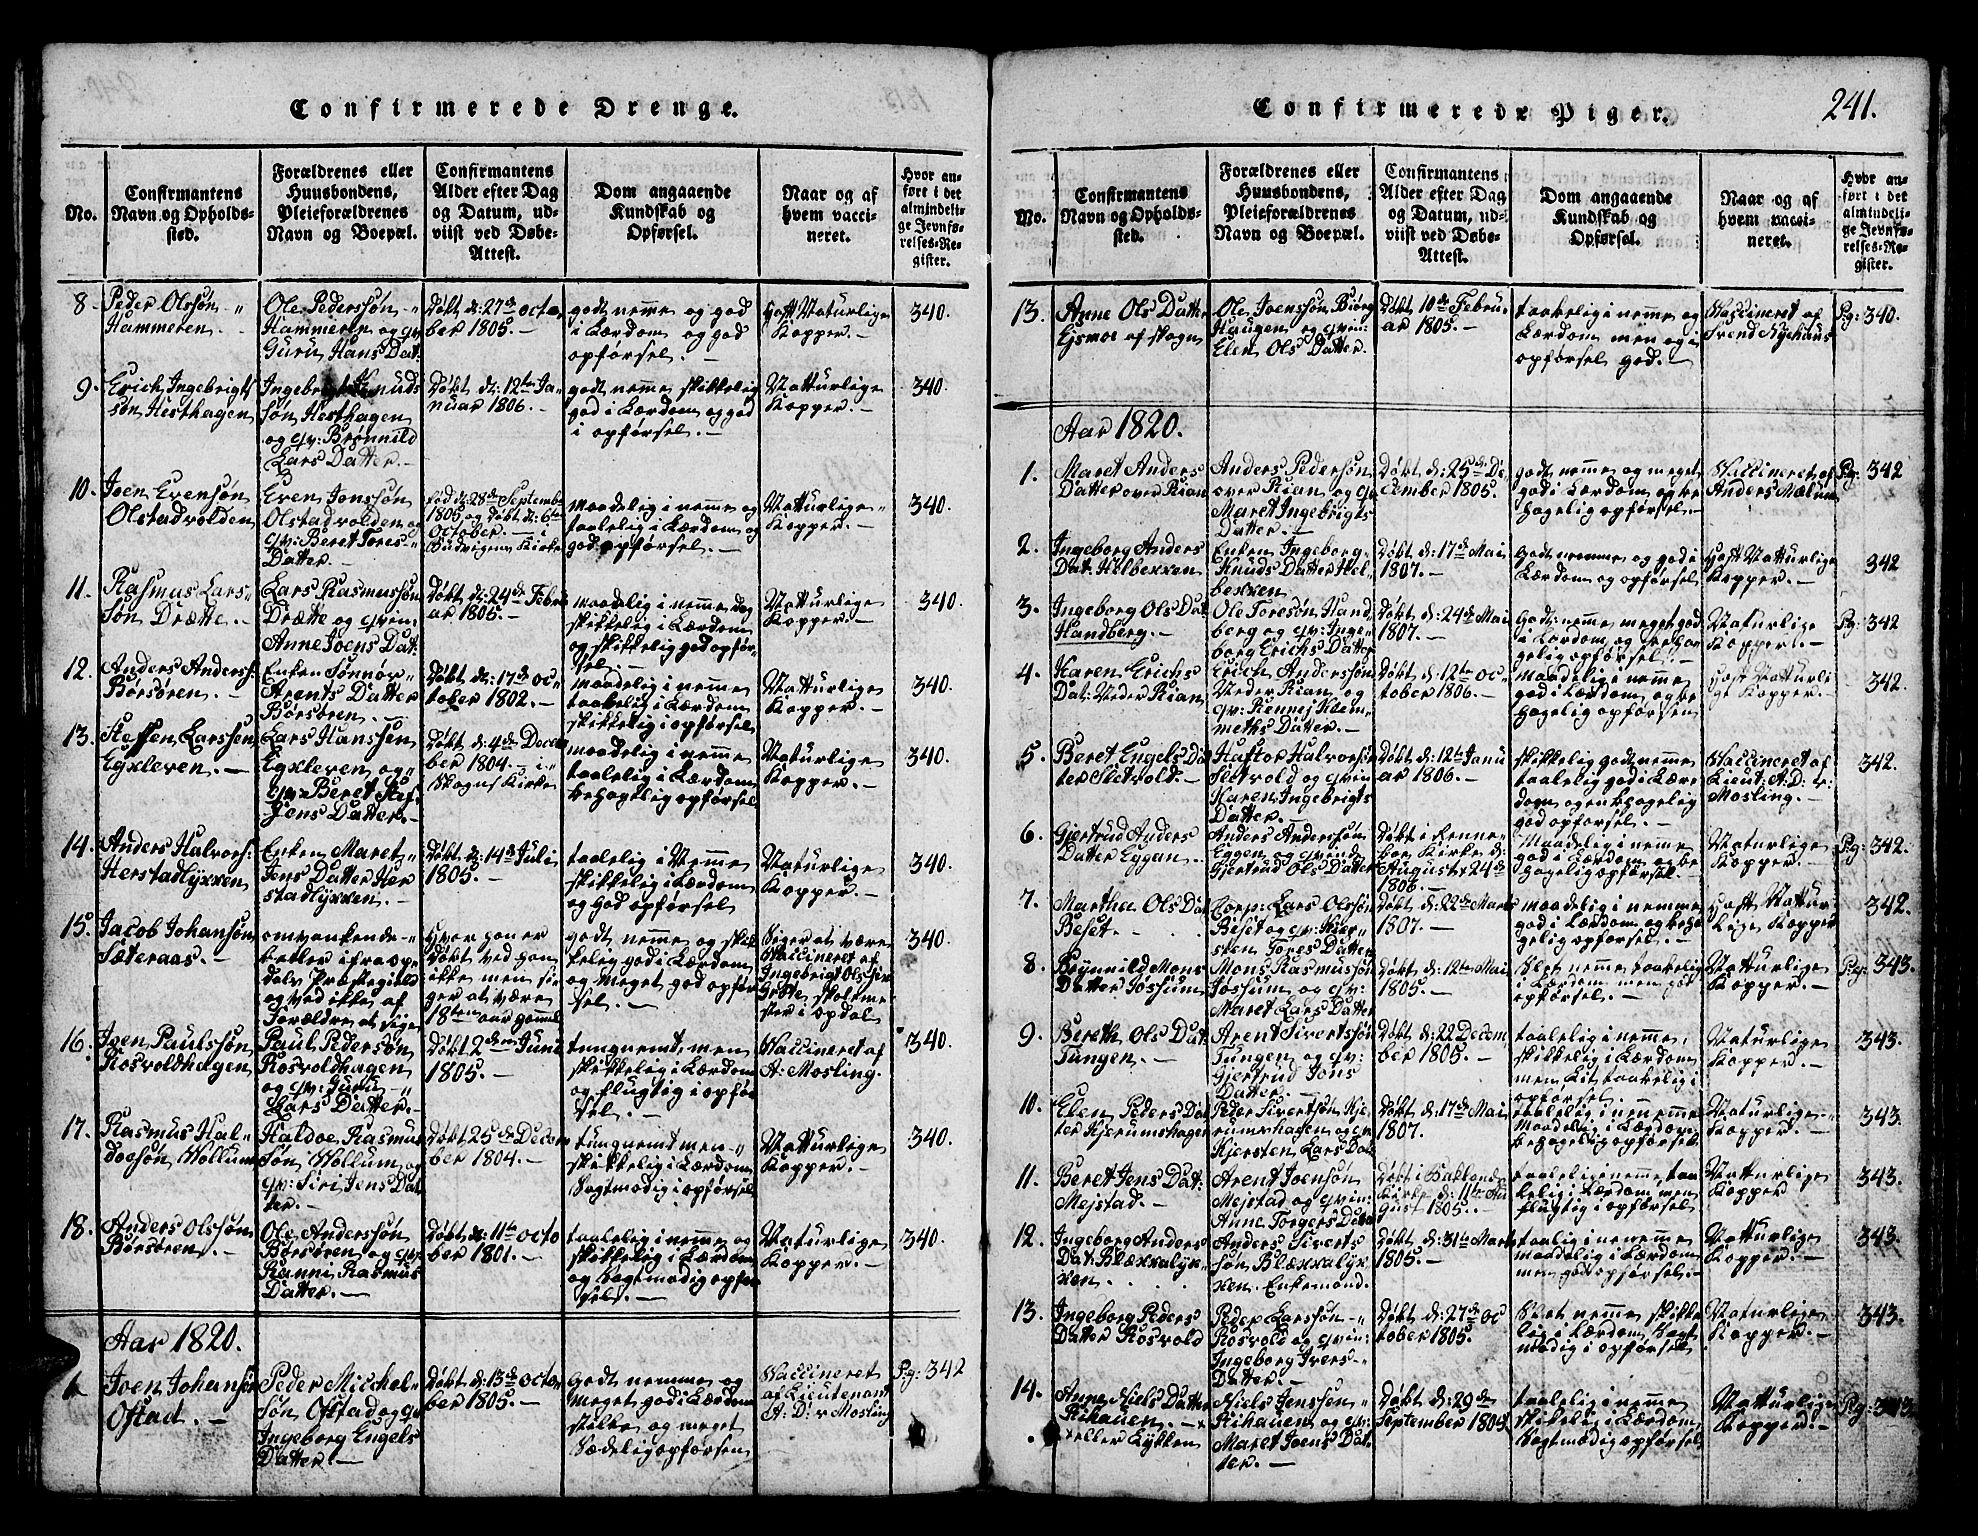 Confirmerede Drenge.
No.
Confirmantens
Navn og Opholds-
sted.
Forældrenes eller
Huusbondens,
Pleieforældrenes
Navn og Boepæl.
Confirmantens
Alder efter Dag
og Datum, ud-
viist ved Døbe-
Attest.
Dom angaaende
Kundskab og
Opførsel.
Naar og af
hvem vacci-
neret.
Hvor an-
ført i det
almindeli-
ge Jevnfø-
relses-Re-
gister.
8. Peder Olssøn
Hammeren
Ole Pederssøn
Hammeren og qv:
Guru Hans Dat:
Døbt d: 27de octo
ber 1805.
godt nemme og god
i Kærdom og god
opførsel.
haft Naturlige
Kopper.
340.
9. Erich Ingebrigt
søn Hesthagen
Ingebrigt Knuds
søn Hesthagen
og qv: Brønnild
Lars Datter.
Døbt d: 12te Ja-
nuar 1806.
godt nemme skikkelig
god i Kærdom og god
i opførsel.
Natturlige
Kopper.
340.
10. Joen Evensøn
Olstadvolden
Even Jonssøn
Olstadvolden og
qv: Beret Tores-
Datter.
fød d: 28de Septemb
1805 og døbt d: 6te
October. i
Budvigens Kirke
maadelig i nemme og
taalelig i Kærdom og
god opførsel.
Natturlige
Kopper.
340.
11. Rasmus Lars-
søn Drætte.
Lars Rasmussøn
Drætte og qvin:
Anne Joens Dat:
Døbt d: 24de Febru
ar 1805.
maadelig i nemme og
skikkelig i Kærdom
og skikkelig god opfør-
sel.
Natturlige
Kopper.
340.
12. Anders Anders:
Børsøren.
Enken Sønnov
Arents Datter
Børsøren.
Døbt d: 17de oc-
tober 1802.
maadelig i nemme
taalelig i Kærdom
skikkelig i opførsel
Natturlige
Kopper.
340.
13. Steffen Larssen
Egxleven.
Lars Hanssen
Egxleven og
qv: Beret Stef-
fens Datter.
Døbt d: 4de Decem
ber 1804. i
Skogns Kirke
maadelig i nemme
taalelig i Kærdom
behagelig opførsel
Naturlige
Kopper.
340.
14. Anders Halvors:
Herstadlyxxen
Enken Maret
Jens Datter Her
stadlyxxen
Døbt d: 14de Juli
1805.
taalelig i Nemme
skikkelig i Kærdom
og god opførsel
Naturlige
Kopper.
340.
15. Jacob Johansøn
Sæteraas.
omvankende
betler ifra op-
dals Præstegield
og ved ikke af
Forældre at sige
Hver han er
døbt ved han
ikke men si-
ger at være
18ten aar gammel
godt nemme og skik
kelig god i Kærdom
og Meget god opfør
sel.
Siger at være
Vaccineret af
Ingebrigt Ols
skolemes
ster i opdal
340.
16. Joen Paulssøn
Rosvoldhagen
Paul Pedersøn
Rosvoldhagen
og qv: Guru
Lars Datter.
Døbt 2den Juni
1805.
tungnemt, men
skikkelig i Kærdom
og flugtig i opfør
sel.
Vaccineret af
A: Mosling.
340.
17. Rasmus Hal-
doesøn Wollum
Haldoe Rasmus
søn Wollum og
qv: Siri Jens Dat
ter.
Døbt 25de Decem
ber 1804.
tungnemt men
skikkelig i Kærdom
Sagtmodig i opførsel
Naturlige
Kopper.
340.
18. Anders Olssøn
Børsøren.
Ole Anderssøn
Børsøren og qv:
Ranni Rasmus
Datter.
Døbt d: 11te octo
ber 1801.
taalelig i nemme og
skikkelig i Kærdom
og Sagtmodig opfør
sel.
Naturlige
Kopper.
340.
Aar 1820.
Joen Johansøn
Ofstad.
Peder Michel-
søn Ofstad og qv:
Ingeborg Engels
Datter.
Døbt d: 13de octo
ber 1805.
Godt nemme og
meget god i Kærdom
stille og meget
Sædelig opførsel
Vaccineret
af Lieutenant
A: D: v Mosling
Pg: 342
Confirmerede Piger.
241.
No.
Confirmantens
Navn og Opholds-
sted.
Forældrenes eller
Huusbondens,
Pleieforældrenes
Navn og Boepæl.
Confirmantens
Alder efter Dag
og Datum, ud-
viist ved Døbe-
Attest.
Dom angaaende
Kundskab og
Opførsel.
Naar og af
hvem vacci-
neret.
Hvor an-
ført i det
almindeli-
ge Jevnfø-
relses-Re-
gister.
13. Anne Ols Datter
Ejsmo af Skogn
Ole Joenssøn Biørg
Haugen og qvin:
Elen Ols Datter.
Døbt 10de Febru
ar 1805.
taalelig i nemme og
Kærdom men og i
opførsel god.
Vaccineret af
Svend Nyehuus
Pg: 340.
Aar 1820.
1. Maret Anders
Datter over Rian
Anders Pedersøn
over Rian og qv:
Maret Ingebrigts
Datter.
Døbt d: 25de De
cember 1805.
godt nemme og meget
god i Kærdom og be
hagelig opførsel.
Vaccineret af
Anders Mælum
Pg: 342
2. Ingeborg Anders
Dat: Helbexxen
Enken Ingeborg
Knuds Datter Hel-
bexxen
Døbt d: 17de Mai
1807.
godt nemme og god i
Kærdom og opførsel.
haft Natturlige
Kopper.
342
3. Ingeborg Ols Dat
Handberg.
Ole Toresøn Hand
berg og qv: Inge-
borg Erichs Datter
Døbt d: 24de Mai
1807.
Godt nemme meget god
i Kærdom og beha
gelig opførsel.
Naturlige
Kopper.
Pg: 342
4. Karen Erichs
Dat: Neder Rian
Erich Anderssøn
Neder Rian og
qv: Rennej Klem-
meths Datter.
Døbt d: 12te oc
tober 1806.
maadelig i nemme
god i Kærdom og be
hagelig opførsel
haft Naturli
ge Kopper.
342.
5. Beret Engels Dat
ter Sletvold.
Haftor Halvorsøn
Sletvold og qvin
Karen Ingebrigts
Datter.
Døbt d: 12te Janu
ar 1806.
skikkelig godt nemme
taalelig god i Kær-
dom, og en behagelig
god opførsel.
Vaccineret af
Lieut: A: D: v:
Mosling.
342.
6. Gjertrud Anders
Datter Eggan.
Anders Anderssøn
Eggen og qvinde
Gjertrud Ols Datter
Døbt i Lenne-
bor Kirke d:
August 24de
1806.
Maadelig i nemme
god i Kærdom og be
hagelig opførsel.
Naturlige
Kopper.
Pg: 342.
7. Martha Ols Dat
Beset.
Corp: Lars Olssøn
Beset og qv: Kier-
sten Tores Datter
Døbt d: 22de Marts
1807.
maadelig i nemme
god i Kærdom og beha
gelig opførsel.
haft Natur
lige Kopper
342.
8. Brynnild Mons
Datter Jossum
Mons Rasmussøn
Jossum og qv:
Maret Lars Datter
Døbt d: 12te Mai
1805.
Slet nemme taalelig
i Kærdom men god
opførsel.
Naturlige
Kopper.
Pg: 343.
9. Bereth Ols Dat:
Tungen.
Arent Sivertssøn
Tungen og qv:
Gjertrud Jons
Datter.
Døbt d: 22 Decem
ber 1805.
taalelig i nemme,
skikkelig i Kærdom
men Lit taalelig i
opførsel.
Naturlige
Kopper.
343.
10. Elen Peders Dat
ter Kjerumshagen
Peder Sivertsøn Kje
rumshagen og qv
Kjersten Lars Dat
Døbt d: 17de Mai
1807.
taalelig i nemme
Maadelig i Kærdom
behagelig opførsel
Naturlige
Kopper.
343.
11. Beret Jens Dat:
Mejstad.
Arent Joensøn
Mejstad og qvin:
Anne Torgers Dat
Døbt i Baklands
Kirke d: 11te Au
gust 1805.
taalelig i nemme, taa
lelig i Kærdom men
flugtig i opførsel.
Naturlige
Kopper
343.
12. Ingeborg Anders
Dat: Blexxalyx-
xen
Anders Siverts
søn Blexxalyx
xen. Enkemand.
Døbt d: 31te Marts
1805.
taalig i nemme
maadelig i Kærdom
men god opførsel.
Naturlige
Kopper.
343.
13. Ingeborg Peders
Datter Rosvold
Peder Larssøn
Rosvold og qvin:
Ingeborg Ivers
Datter.
Døbt d: 27de oc
tober 1805.
Slet nemme skikke
lig i Kærdom, Sagt
modig i opførsel
Naturlige
Kopper.
343.
14. Anne Niels Datter
Rihauen.
x eller Lykken
Niels Jenssøn
Rihauen og qv:
Maret Joens Dat
ter.
Døbt d: 29de
September 1804
taalelig i nemme
skikkelig i Kærdom
Sagtmodig opførsel
Naturlige
Kopper.
Pg: 343